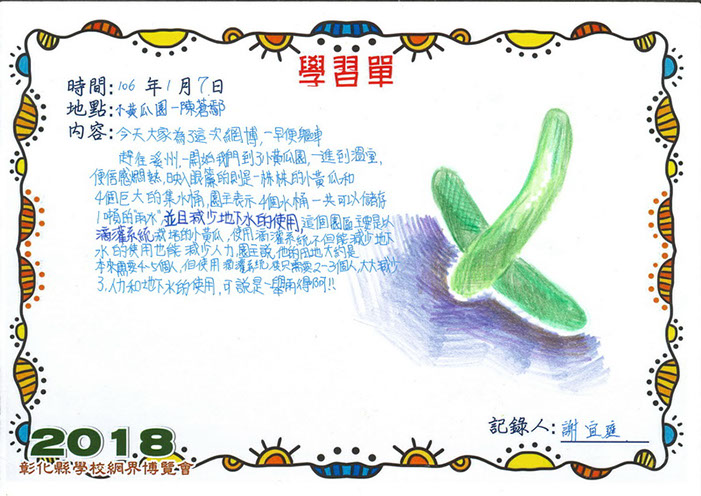 學習單
時間:106 年1月7日
地點:小黃瓜園-陳
內容:今天大家為了這次網博,一早便驅車
趕往溪州,一開始我們到了小黃瓜園,一進到溫室,
便倍感悶熱,映入眼簾的則是一株株的小黃瓜和
4個巨大的集水桶,園主表示4個水桶一共可以儲存
1噸的雨水,並且減少地下水的使用,這個園區主要是以
滴灌系統栽培的小黃瓜,使用滴灌系統不但能減少地下
水的使用也能減少人力,園主說,他的田地大約是
本來需要4-5個人,但使用滴灌系統後只需要2-3個人,大大減少
了人力和地下水的使用,可說是一舉兩得阿!!
記錄人:謝宜
2018
彰化縣學校網界博覽會